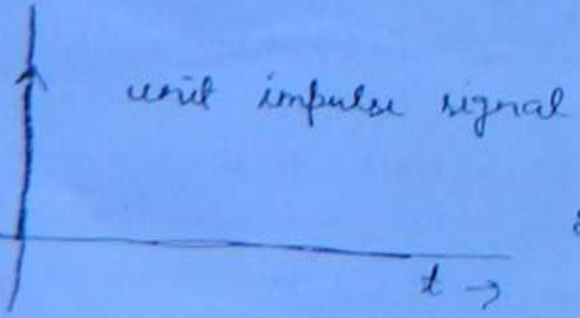 unit impulse signal
t →